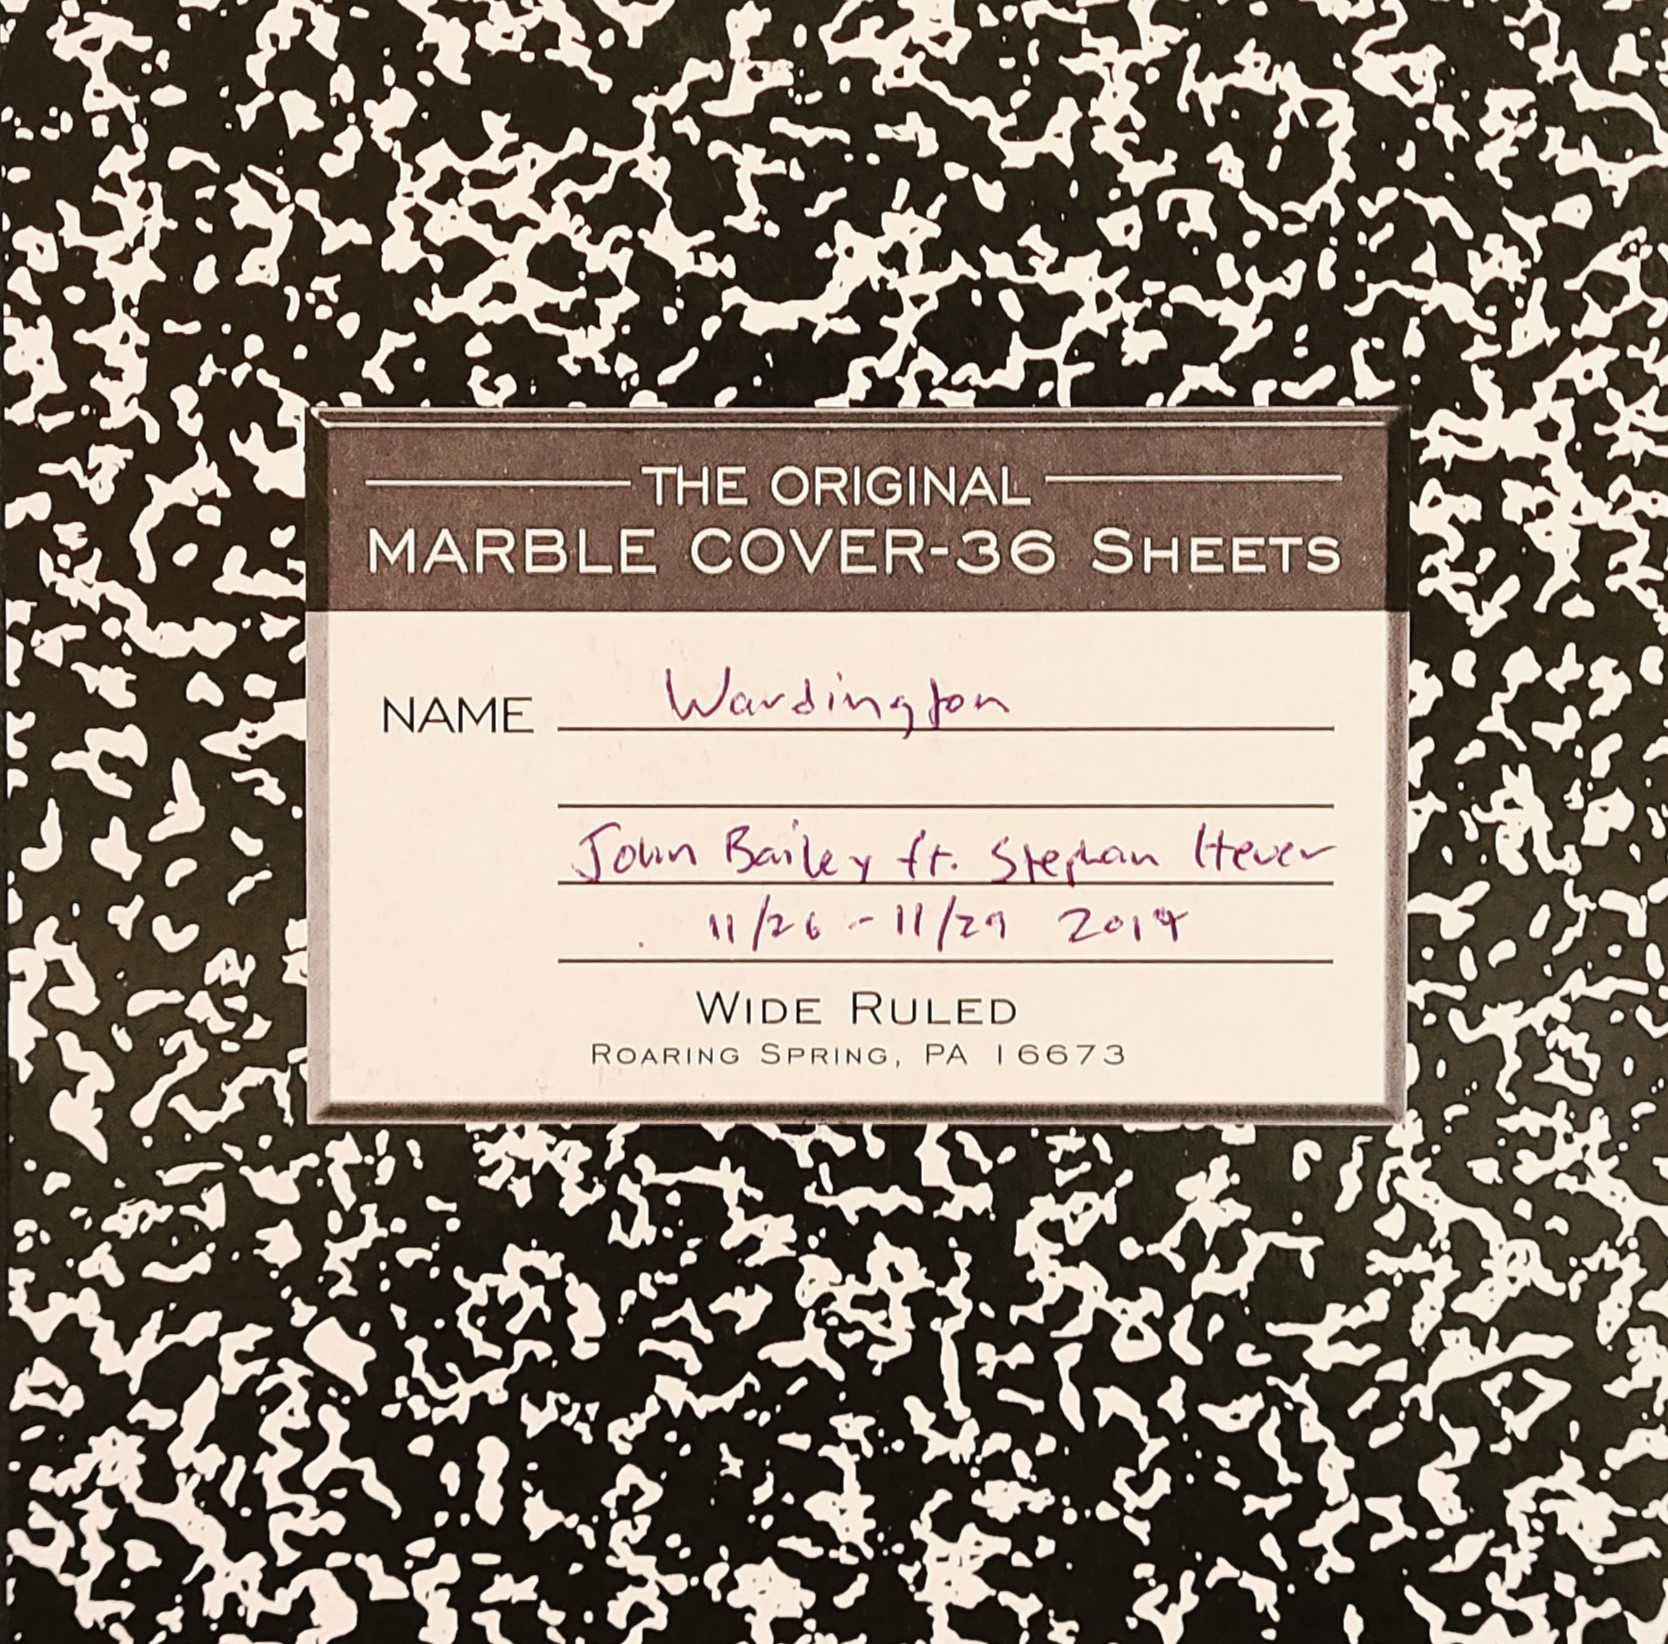 THE ORIGINAL
MARBLE COVER-36 SHEETS
NAME Wardington
John Bailey ft. Stephan Hever
11/26 - 11/29 2019
WIDE RULED
ROARING SPRING, PA 16673